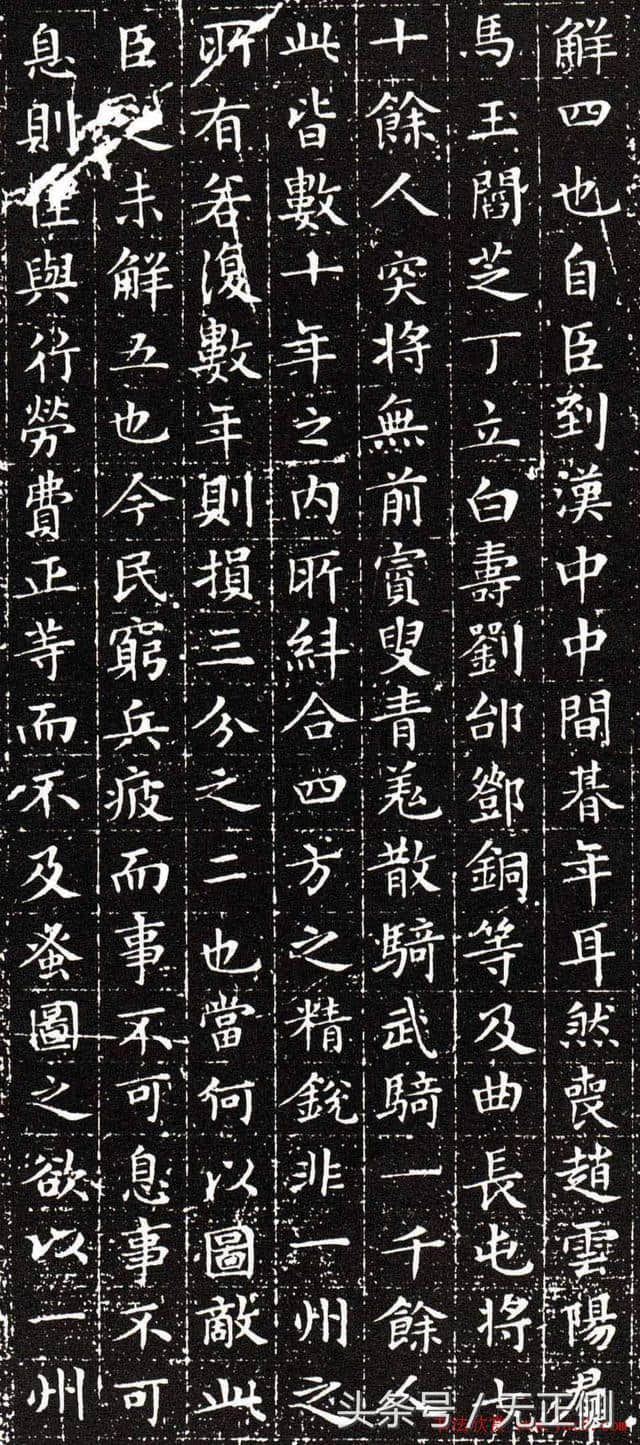 解四也自臣到漢中中間朞年耳然喪趙雲陽羣
馬玉閻芝丁立白壽劉郃鄧銅等及曲長屯將七
十餘人突將無前賨叟青羌散騎武騎一千餘人
此皆數十年之內所糾合四方之精銳非一州之
所有若復數年則損三分之二也當何以圖敵此
臣之未解五也今民窮兵疲而事不可息事不可
息則住與行勞費正等而不及蚤圖之欲以一州
头条号 / 无正侧
书法欣赏